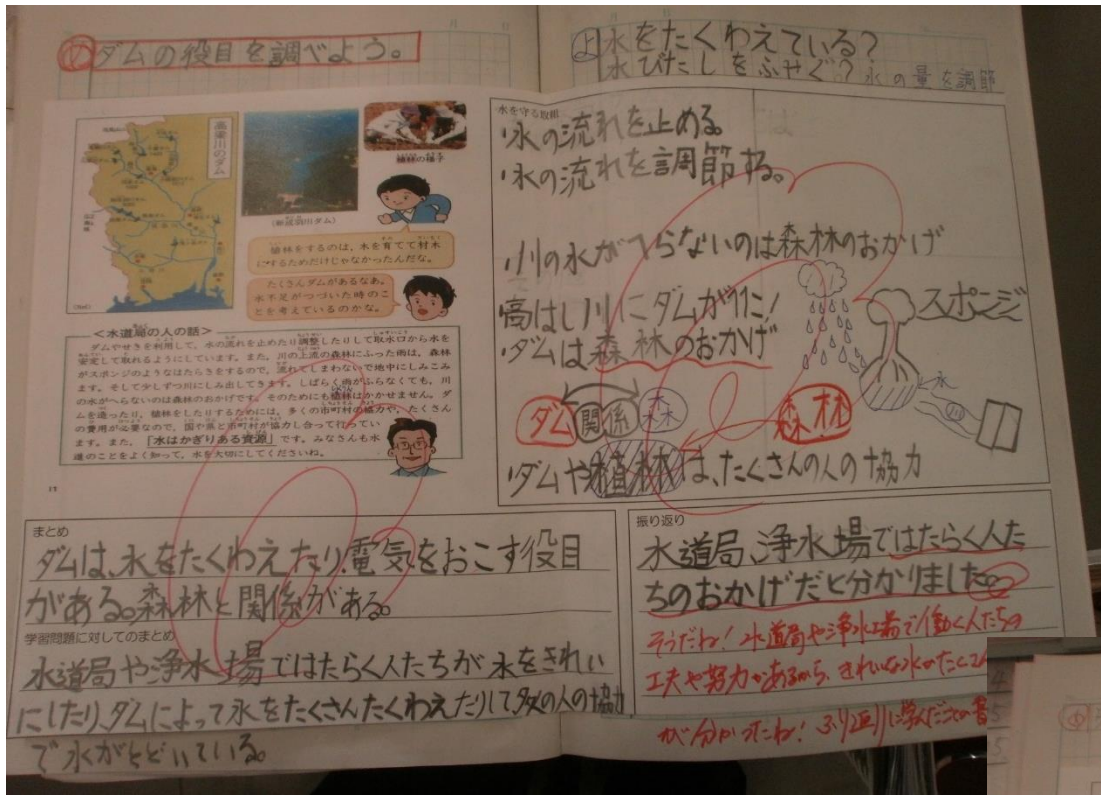 め ダムの役目を調べよう。
よ 水をたくわえている?
水びたしをふせぐ? 水の量を調節
高梁川のダム
植林の様子
(新成羽川ダム)
植林をするのは、木を育てて材木
にするためだけじゃなかったんだな。
たくさんダムがあるなあ。
水不足がつづいた時のこ
とを考えているのかな。
<水道局の人の話>
ダムやせきを利用して、水の流れを止めたり調整したりして取水口から水を
安定して取れるようにしています。また、川の上流の森林にふった雨は、森林
がスポンジのようなはたらきをするので、流れてしまわないで地中にしみこみ
ます。そして少しずつ川にしみ出してきます。しばらく雨がふらなくても、川
の水がへらないのは森林のおかげです。そのためにも植林はかかせません。ダ
ムを造ったり、植林をしたりするためには、多くの市町村の協力や、たくさん
の費用が必要なので、国や県と市町村が協力し合って行ってい
ます。また、「水はかぎりある資源」です。みなさんも水
道のことをよく知って、水を大切にしてくださいね。
17
水を守る取組
・水の流れを止める。
・水の流れを調節する。
・川の水がへらないのは森林のおかげ
高はし川にダムが
・ダムは森林のおかげ
スポンジ
水
川
ダム 関係 森 森林
・ダムや植林は、たくさんの人の協力
まとめ
ダムは、水をたくわえたり、電気をおこす役目
がある。森林と関係がある。
学習問題に対してのまとめ
水道局や浄水場ではたらく人たちが水をきれい
にしたり、ダムによって水をたくさんたくわえたりして、多くの人の協力
で水がとどいている。
振り返り
水道局、浄水場ではたらく人た
ちのおかげだと分かりました。
そうだね!水道局や浄水場で働く人たちの
工夫や努力があるから、きれいな水が
が分かったね!ふり返りに学んだことが書